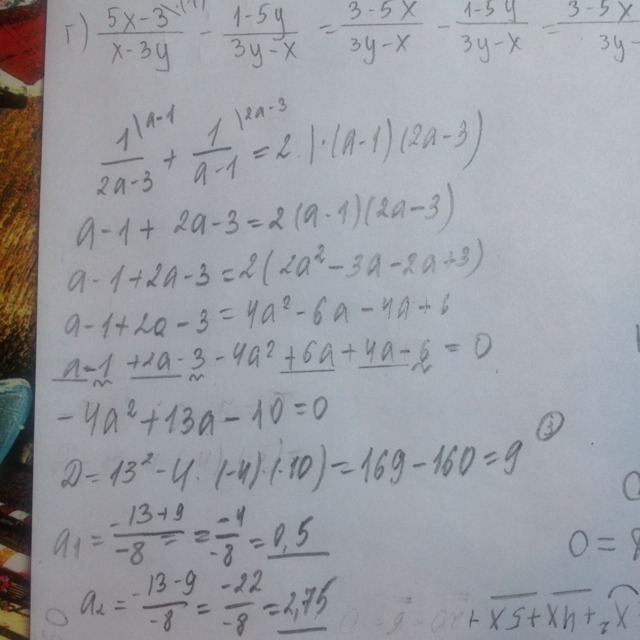 г) (5x-3)/(x-3y) - (1-5y)/(3y-x) = (3-5x)/(3y-x) - (1-5y)/(3y-x) = (3-5x)/(3y-
1\a-1/(2a-3) + 1\2a-3/(a-1) = 2 |·(a-1)(2a-3)
a-1+2a-3=2(a-1)(2a-3)
a-1+2a-3=2(2a²-3a-2a+3)
a-1+2a-3=4a²-6a-4a+6
a-1+2a-3-4a²+6a+4a-6=0
-4a²+13a-10=0
D=13²-4·(-4)·(-10)=169-160=9 ③
a₁=(-13+9)/-8=-4/-8=0,5
a₂=(-13-9)/-8=-22/-8=2,75